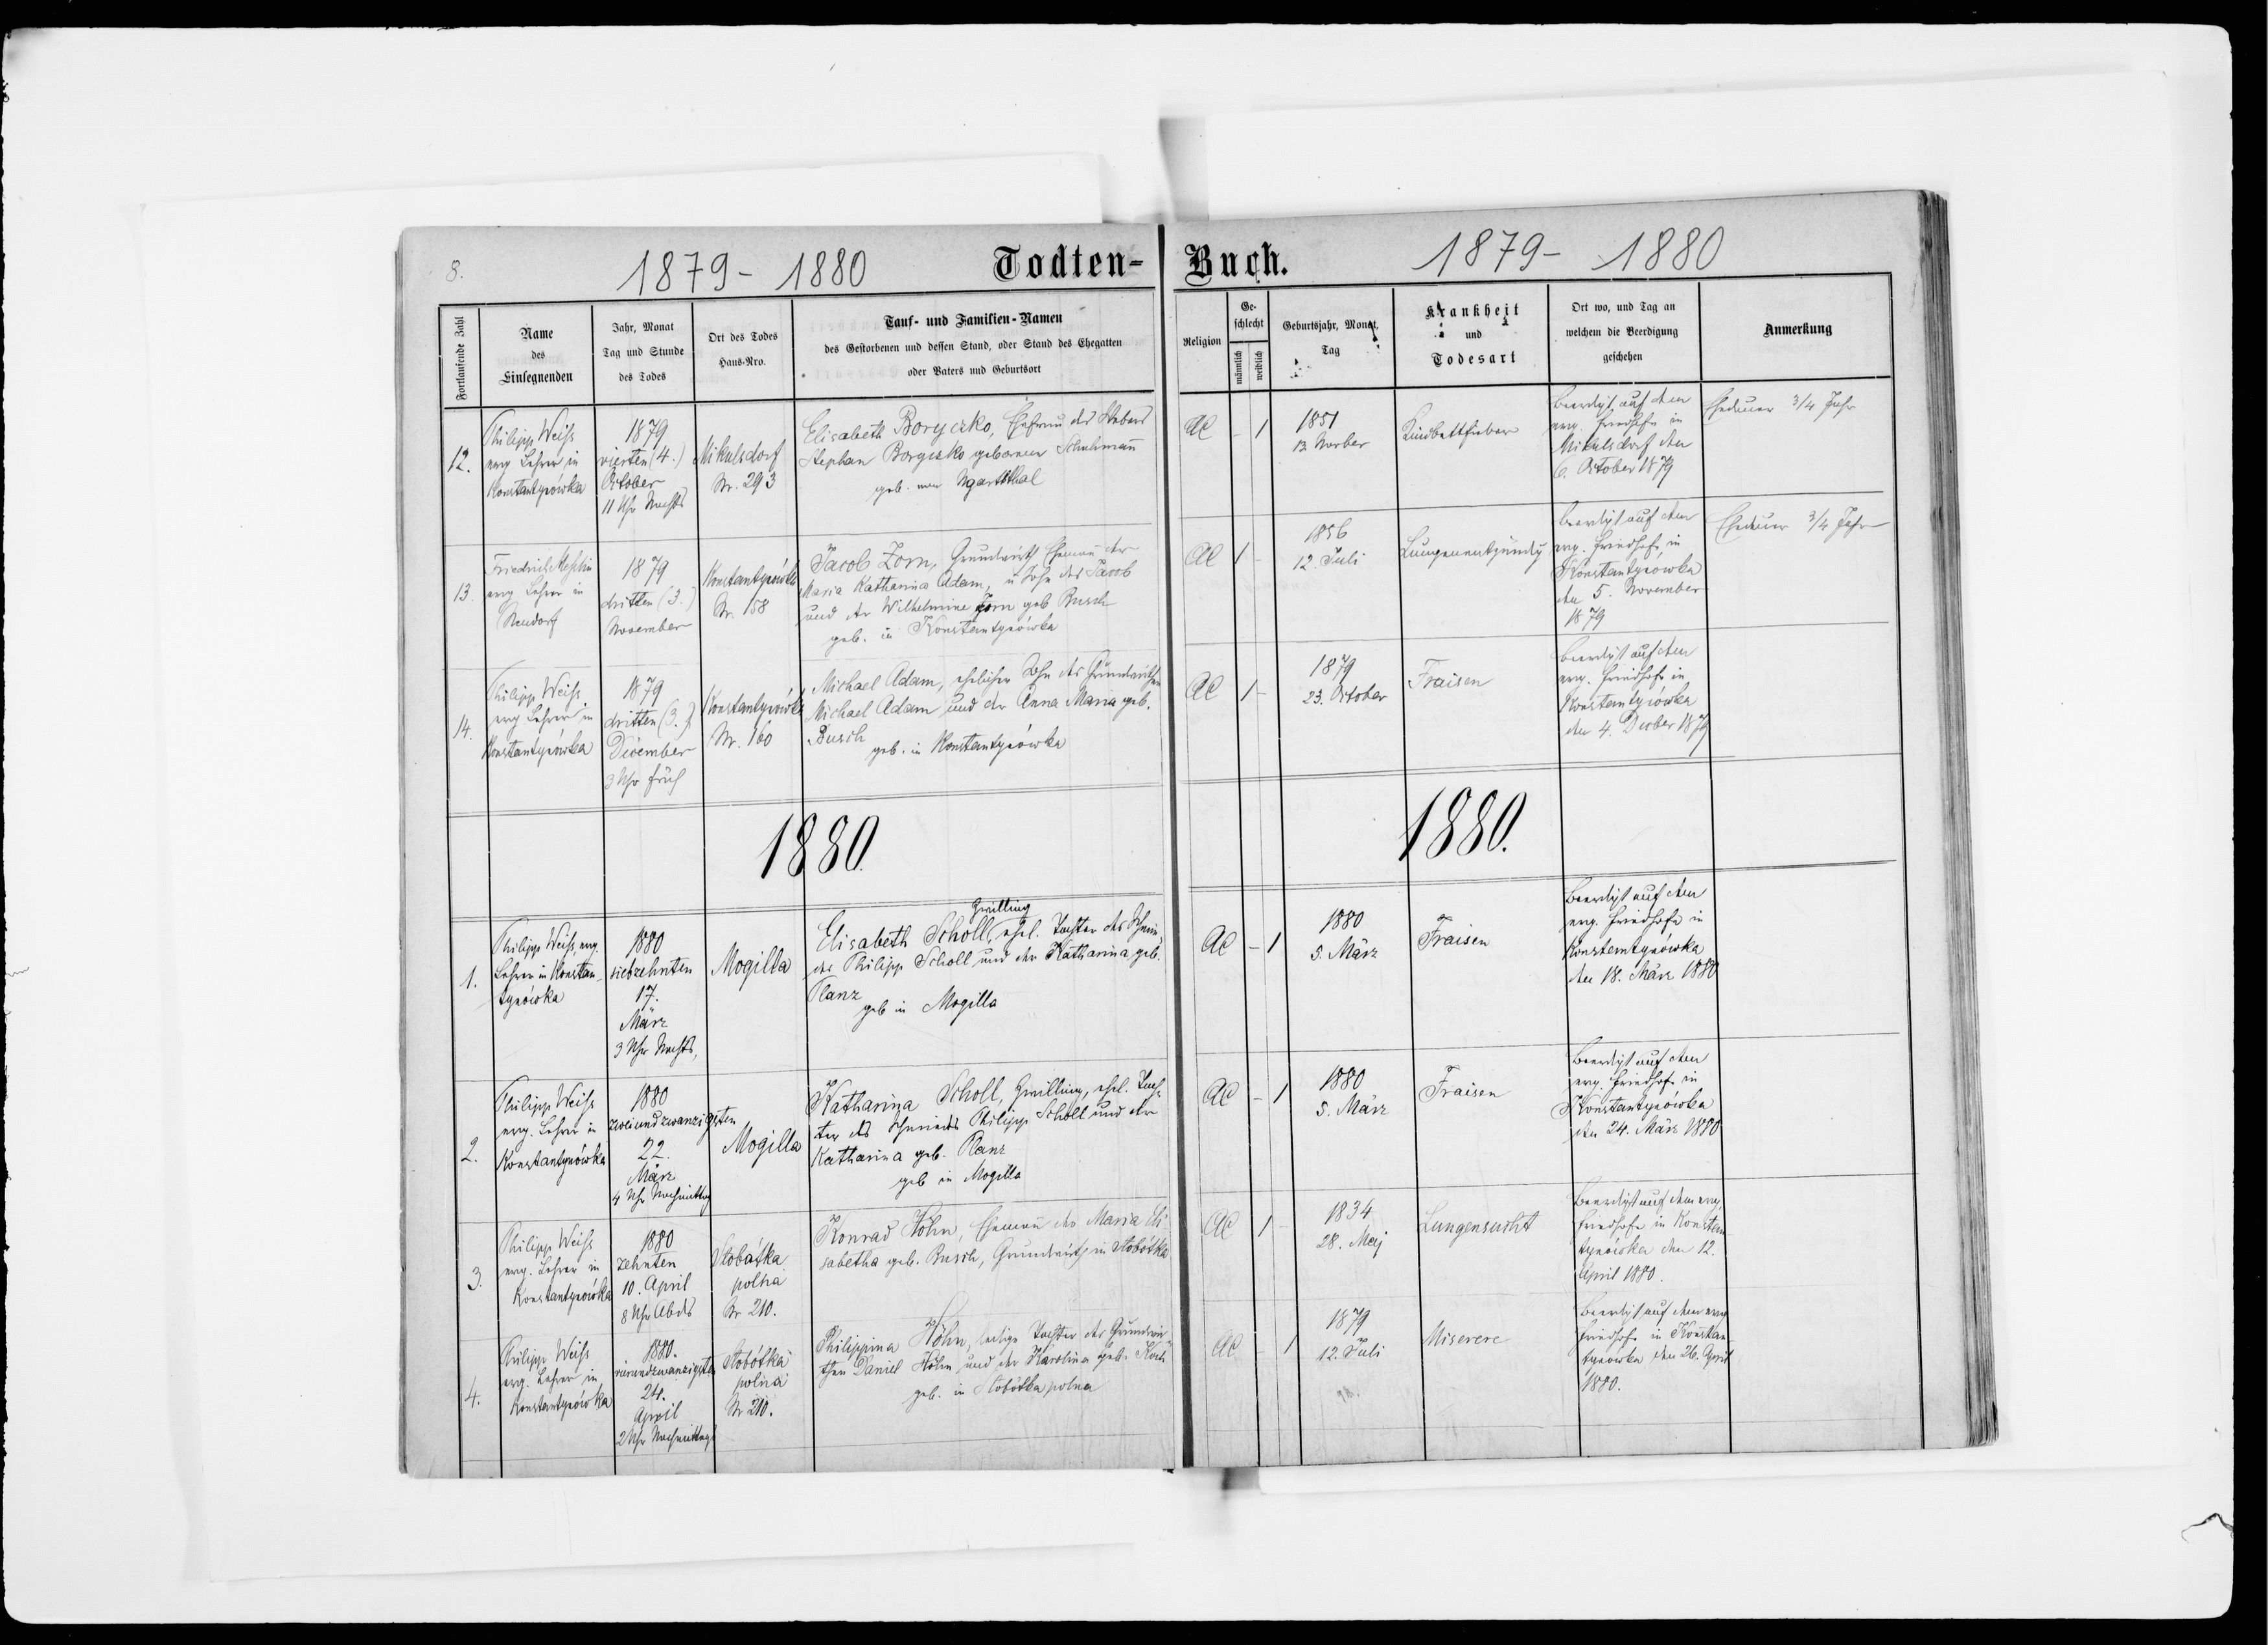 8.
1879 - 1880
Todten-
Fortlaufende Zahl
Name
des
Einsegnenden
Jahr, Monat
Tag und Stunde
des Todes
Ort des Todes
Haus-Nro.
Tauf- und Familien-Namen
des Gestorbenen und dessen Stand, oder Stand des Ehegatten
oder Vaters und Geburtsort
12.
Philipp Weiss
evg Lehrer in
Konstantynowka
1879
vierten (4.)
October
11 Uhr Nachts
Mikulsdorf
Nr. 293
Elisabeth Boryczko, Ehefrau des Webers
Stephan Boryczko geborene Schuhmann
geb. von Ugartsthal
13.
Friedrich
evg Lehrer in
Neudorf
1879
dritten (3.)
November
Konstantynówka
Nr. 158
Jacob Zorn, Grundwirth Ehemann der
Maria Katharina Adam, u Sohn des Jacob
und der Wilhelmine Zorn geb Busch
geb. in Konstantynówka
14.
Philipp Weiss
evg Lehrer in
Konstantynówka
1879
dritten (3.)
December
3 Uhr früh
Konstantynówka
Nr. 160
Michael Adam, ehelicher Sohn des Grundwirthen
Michael Adam und der Anna Maria geb.
Busch
geb. in Konstantynówka
1880.
1.
Philipp Weiss, evg.
Lehrer in Konstan-
tynówka
1880
siebzehnten
17.
März
3 Uhr Nachts,
Mogilla
Zwilling
Elisabeth Scholl, ehel. Tochter des Schmie-
des Philipp Scholl und der Katharina, geb.
Planz
geb in Mogilla
2.
Philipp Weiss
evg. Lehrer in
Konstantynówka
1880
zweiundzwanzigsten
22.
März
4 Uhr Nachmittag
Mogilla
Katharina Scholl, Zwilling, ehel. Toch-
ter des Schmieds Philipp Scholl und der
Katharina geb. Planz
geb in Mogilla
3.
Philipp Weiss
evg. Lehrer in
Konstantynówka
1880
zehnten
10. April
8 Uhr Abds
Slobótka
polna
Nr 210.
Konrad Höhn, Ehemann der Maria Eli-
sabetha geb. Busch, Grundwirth in Slobótka
4.
Philipp Weiss
evg. Lehrer in
Konstantynówka
1880.
vierundzwanzigsten
24.
April
2 Uhr Nachmittags
Slobótka
polna
Nr 210.
Philippina Höhn, ledige Tochter des Grundwir-
then Daniel Höhn und der Karolina geb. Koch
geb. in Slobótka polna
Buch.
1879 - 1880
Religion
Ge-
schlecht
männlich
weiblich
Geburtsjahr, Monat,
Tag
Krankheit
und
Todesart
Ort wo, und Tag an
welchem die Beerdigung
geschehen
Anmerkung
AC
- 1
1851
13. Novber
Kindbettfieber
Beerdigt auf dem
evg. Friedhofe in
Mikulsdorf den
6. October 1879
Ehedauer 3/4 Jahr
AC
1 -
1856
12. Juli
Lungenentzündg
Beerdigt auf dem
evg. Friedhofe, in
Konstantynowka
den 5. November
1879
Ehedauer 3/4 Jahr
AC
1 -
1879
23. October
Fraisen
Beerdigt auf dem
evg. Friedhofe in
Konstantynówka
den 4. Decber 1879
1880.
AC
- 1
1880
5. März
Fraisen
Beerdigt auf dem
evg. Friedhofe in
Konstantynówka
den 18. März 1880
AC
- 1
1880
5. März
Fraisen
Beerdigt auf dem
evg. Friedhofe in
Konstantynówka
den 24. März 1880
AC
1 -
1834
28. Maj
Lungensucht
Beerdigt auf dem evg.
Friedhofe in Konstan
tynówka den 12.
April 1880.
AC
- 1
1879
12. Juli
Miserere
Beerdigt auf dem evg
Friedhofe in Konstan
tynowka den 26. April
1880.